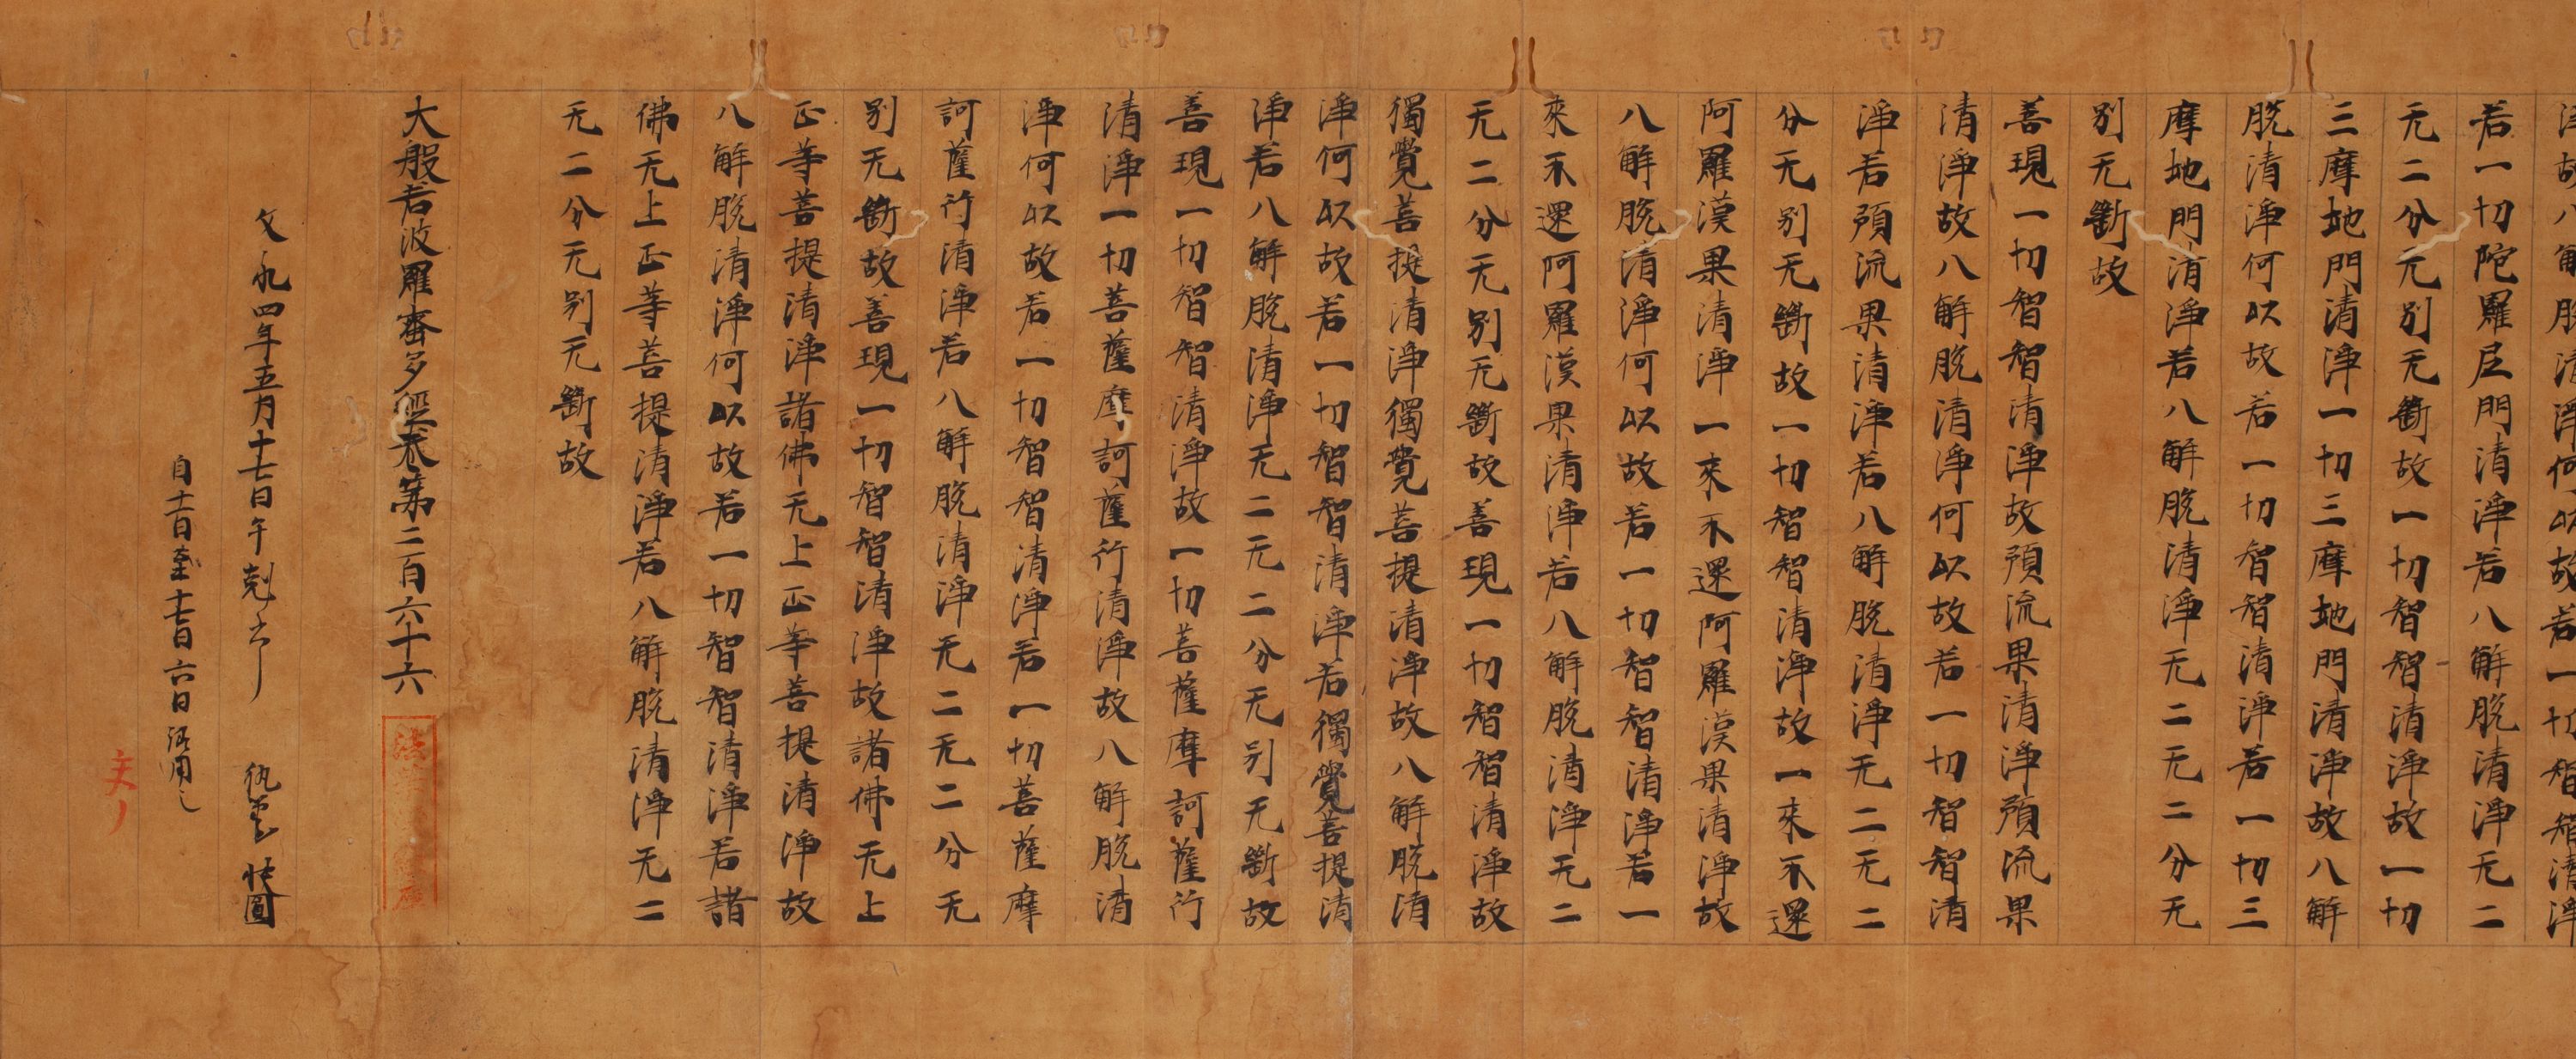 淨故八解脫清淨何以故若一切智智清淨
若一切陀羅尼門清淨若八解脫清淨无二
无二分无別无斷故一切智智清淨故一切
三摩地門清淨一切三摩地門清淨故八解
脫清淨何以故若一切智智清淨若一切三
摩地門清淨若八解脫清淨无二无二分无
別无斷故
善現一切智智清淨故預流果清淨預流果
清淨故八解脫清淨何以故若一切智智清
淨若預流果清淨若八解脫清淨无二无二
分无別无斷故一切智智清淨故一來不還
阿羅漢果清淨一來不還阿羅漢果清淨故
八解脫清淨何以故若一切智智清淨若一
來不還阿羅漢果清淨若八解脫清淨无二
无二分无別无斷故善現一切智智清淨故
獨覺菩提清淨獨覺菩提清淨故八解脫清
淨何以故若一切智智清淨若獨覺菩提清
淨若八解脫清淨无二无二分无別无斷故
善現一切智智清淨故一切菩薩摩訶薩行
清淨一切菩薩摩訶薩行清淨故八解脫清
淨何以故若一切智智清淨若一切菩薩摩
訶薩行清淨若八解脫清淨无二无二分无
別无斷故善現一切智智清淨故諸佛无上
正等菩提清淨諸佛无上正等菩提清淨故
八解脫清淨何以故若一切智智清淨若諸
佛无上正等菩提清淨若八解脫清淨无二
无二分无別无斷故
大般若波羅蜜多經卷第二百六十六
文永四年五月十七日午剋了 執筆 快圓
自十二日至十七日六日